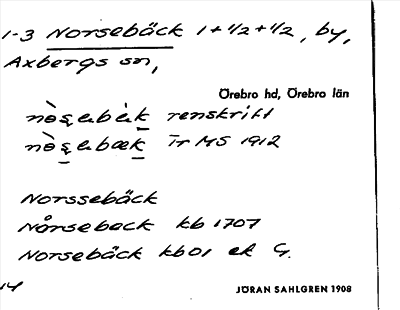 1-3 Norsebäck 1+1/2+1/2, by,
Axbergs sn,
Örebro hd, Örebro län
renskrift
Tr MS 1912
Norssebäck
Nårseback kb 1707
Norsebäck kb01 ek G.
14
JÖRAN SAHLGREN 1908